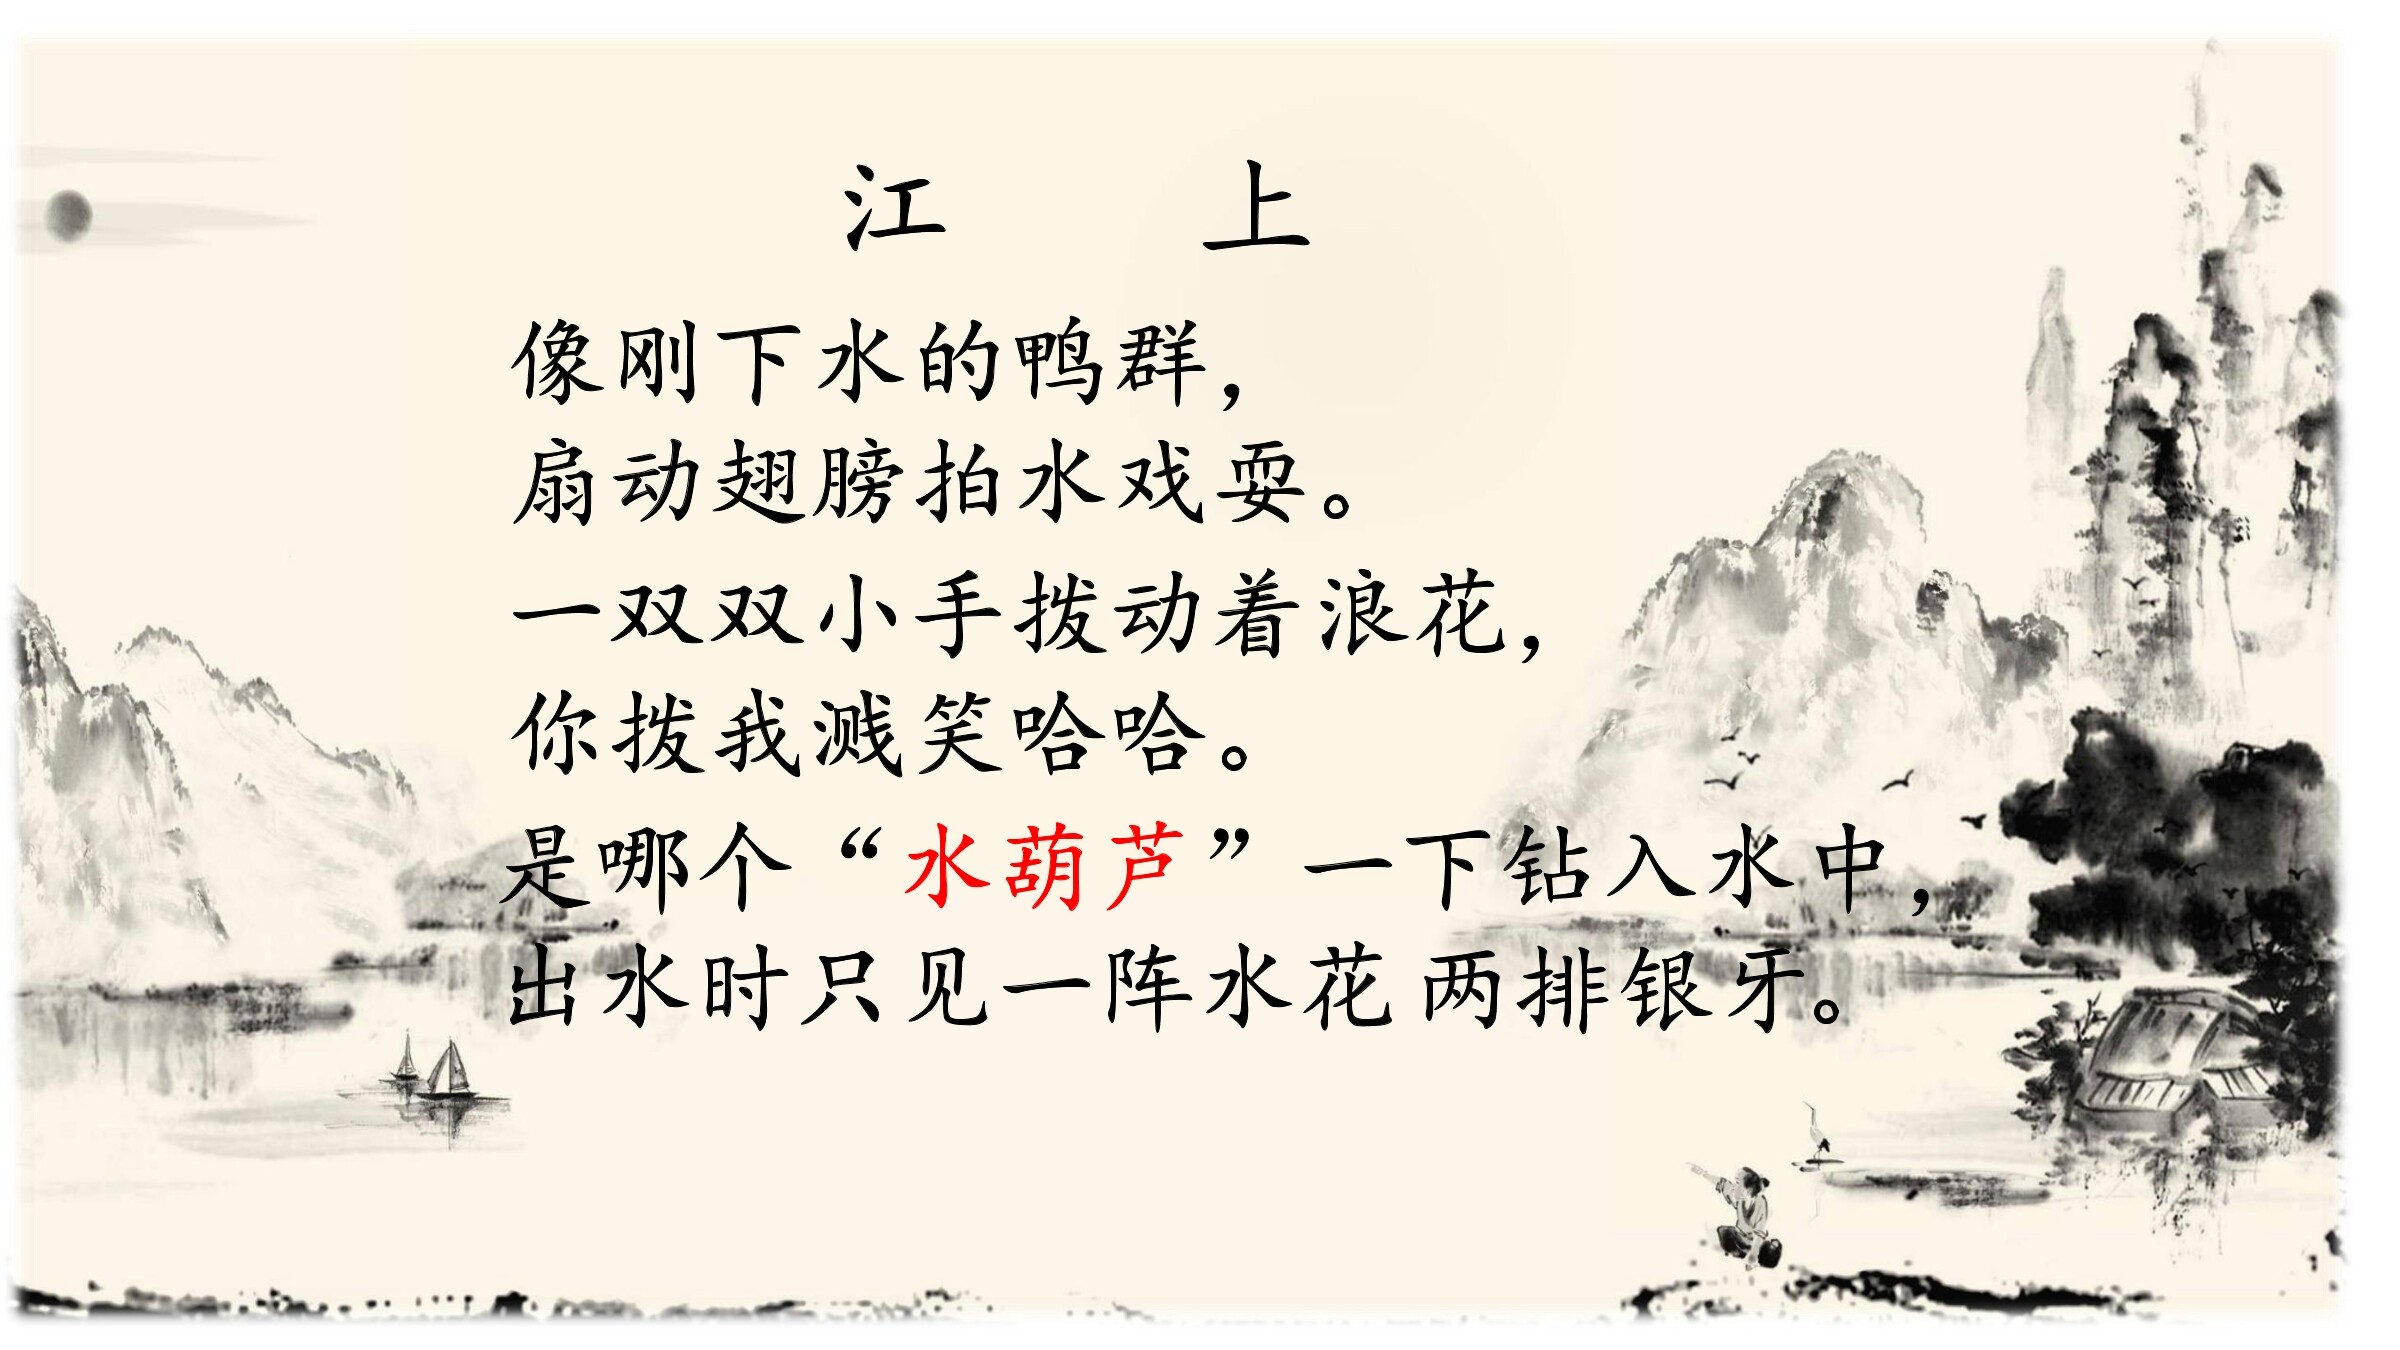 江 上
像刚下水的鸭群，
扇动翅膀拍水戏耍。
一双双小手拨动着浪花，
你拨我溅笑哈哈。
是哪个“水葫芦”一下钻入水中，
出水时只见一阵水花 两排银牙。